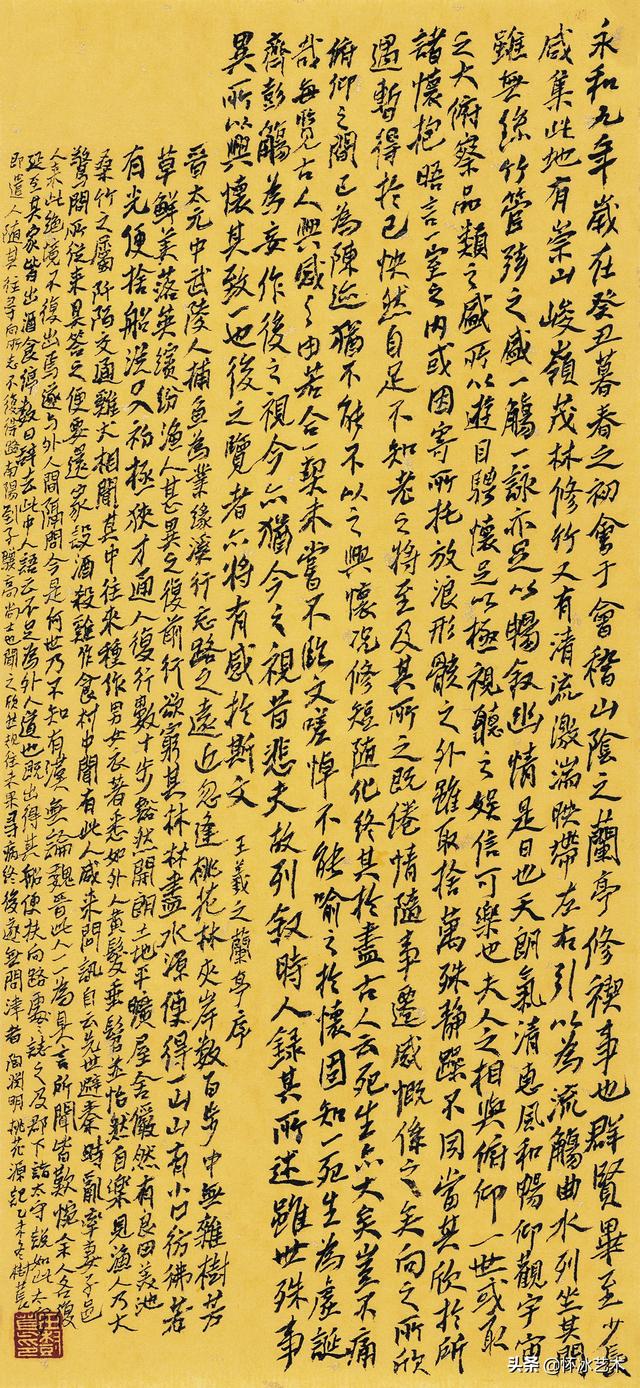 永和九年歲在癸丑暮春之初會于會稽山陰之蘭亭修禊事也群賢畢至少長
咸集此地有崇山峻嶺茂林修竹又有清流激湍映帶左右引以為流觴曲水列坐其間
雖無絲竹管弦之盛一觴一詠亦足以暢敘幽情是日也天朗氣清惠風和暢仰觀宇宙
之大俯察品類之盛所以遊目騁懷足以極視聽之娛信可樂也夫人之相與俯仰一世或取
諸懷抱晤言一室之內或因寄所托放浪形骸之外雖取捨萬殊靜躁不同當其欣於所
遇暫得於己怏然自足不知老之將至及其所之既倦情隨事遷感慨係之矣向之所欣
俯仰之間已為陳迹猶不能不以之興懷況修短隨化終其於盡古人云死生亦大矣豈不痛
哉每覽古人興感之由若合一契未嘗不臨文嗟悼不能喻之於懷固知一死生為虛誕
齊彭觴為妄作後之視今亦猶今之視昔悲夫故列敘時人錄其所述雖世殊事
異所以興懷其致一也後之覽者亦將有感於斯文 王羲之蘭亭序
晉太元中武陵人捕魚為業緣溪行忘路之遠近忽逢桃花林夾岸數百步中無雜樹芳
草鮮美落英繽紛漁人甚異之復前行欲窮其林林盡水源便得一山山有小口彷彿若
有光便捨船從口入初極狹才通人復行數十步豁然開朗土地平曠屋舍儼然有良田美池
桑竹之屬阡陌交通雞犬相聞其中往來種作男女衣著悉如外人黃髮垂髫並怡然自樂見漁人乃大
驚問所從來具答之便要還家設酒殺雞作食村中聞有此人咸來問訊自云先世避秦時亂率妻子邑
人來此絕境不復出焉遂與外人間隔問今是何世乃不知有漢無論魏晉此人一一為具言所聞皆歎惋余人各復
延至其家皆出酒食停數日辭去此中人語云不足為外人道也既出得其船便扶向路處々誌之及郡下詣太守說如此太守
即遣人隨其往尋向所志不復得路南陽劉子驥高尚士也聞之欣然規往未果尋病終後遂無問津者 陶淵明桃花源記乙未冬樹
头条 @怀冰艺术